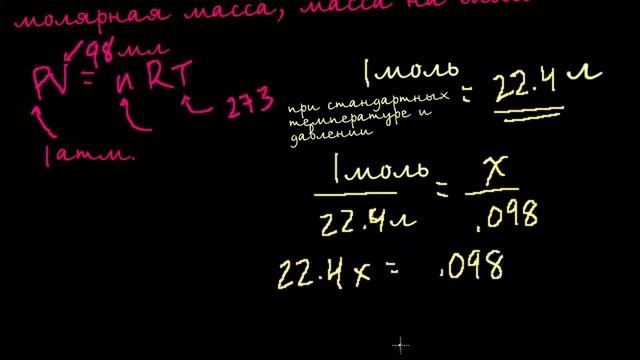 молярная масса, масса на
98 мл
PV = nRT
273
1 атм.
1 моль = 22.4 л
при стандартных
температуре и
давлении
1 моль / 22.4 л = x / .098
22.4x = .098